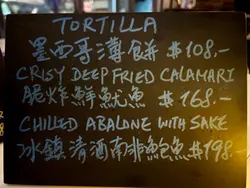 TORTILLA
墨西哥薄餅 $108.-
CRISY DEEP FRIED CALAMARI
脆炸鮮魷魚 $168.-
CHILLED ABALONE WITH SAKE
冰鎮清酒南非鮑魚 $198.-